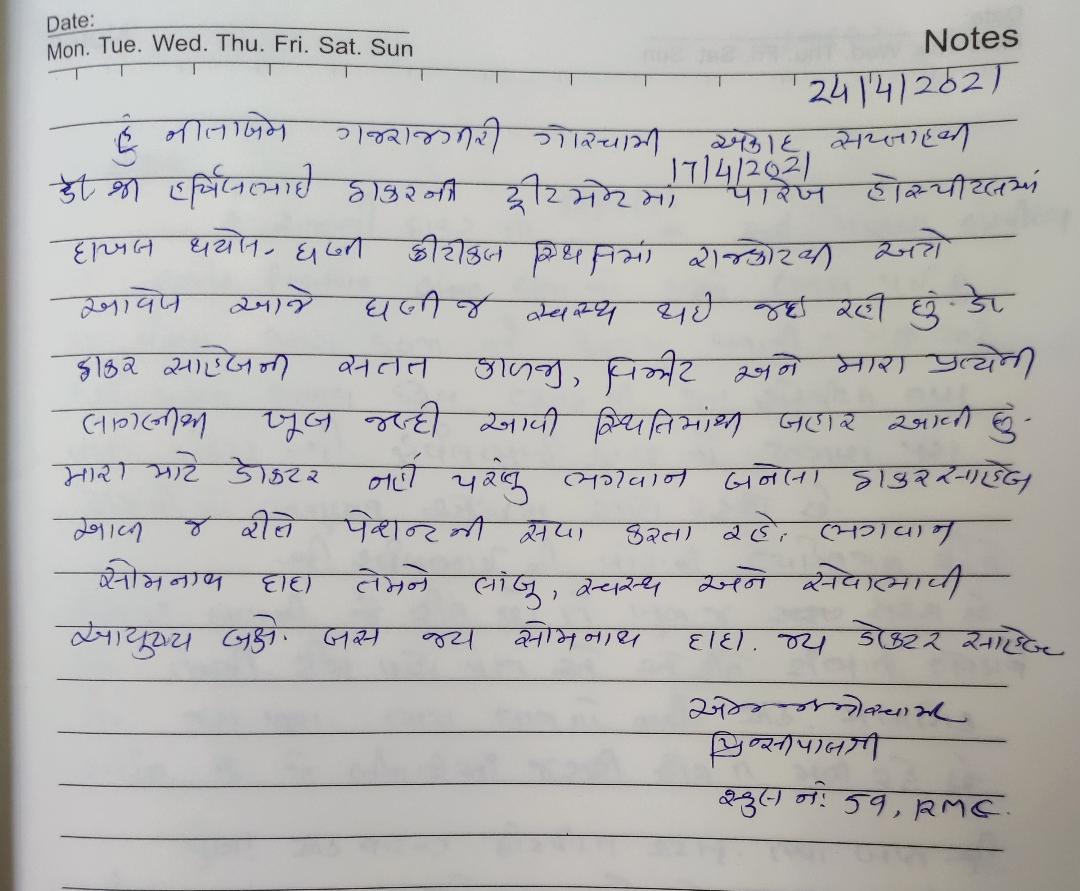 Date:
Mon. Tue. Wed. Thu. Fri. Sat. Sun
Notes
24/4/2021
હું નીલાબેન ગજરાજગીરી ગોસ્વામી એકાદ સપ્તાહથી
17/4/2021
ડૉ શ્રી હર્ષિલભાઈ ઠાકરની ટ્રીટમેન્ટમાં પારેખ હોસ્પીટલમાં
દાખલ થયેલ. ઘણી ક્રીટીકલ સ્થિતિમાં રાજકોટથી અત્રે
આવેલ આજે ઘણી જ સ્વસ્થ થઈ જઇ રહી છું. ડૉ
ઠાકર સાહેબની સતત કાળજી, વિઝીટ અને મારા પ્રત્યેની
લાગણીથી ખૂબ જલ્દી આવી સ્થિતિમાંથી બહાર આવી છું.
મારા માટે ડૉક્ટર નહીં પરંતુ ભગવાન બનેલા ઠાકરસાહેબ
આવી જ રીતે પેશન્ટની સેવા કરતા રહે. ભગવાન
સોમનાથ દાદા તેમને લાંબુ, સ્વસ્થ અને સેવાભાવી
આયુષ્ય બક્ષે. બસ જય સોમનાથ દાદા. જય ડૉક્ટર સાહેબ
પ્રિન્સીપાલશ્રી
સ્કુલ નં: 59, RMC.